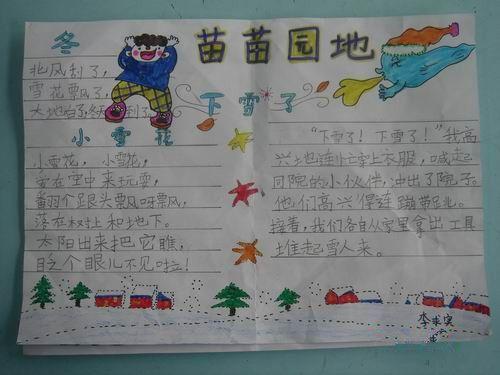 苗苗园地
冬
北风刮了,
雪花飘了,
大地白了,冬天到了。
下雪了
小雪花
小雪花,小雪花,
爱在空中来玩耍,
翻个跟头飘呀飘,
落在树上和地下。
太阳出来把它瞧,
眨个眼儿不见啦!
“下雪了!下雪了!”我高
兴地连忙穿上衣服,喊起
同院的小伙伴,冲出了院子。
他们高兴得连蹦带跳。
接着,我们各自从家里拿出工具
堆起雪人来。
李